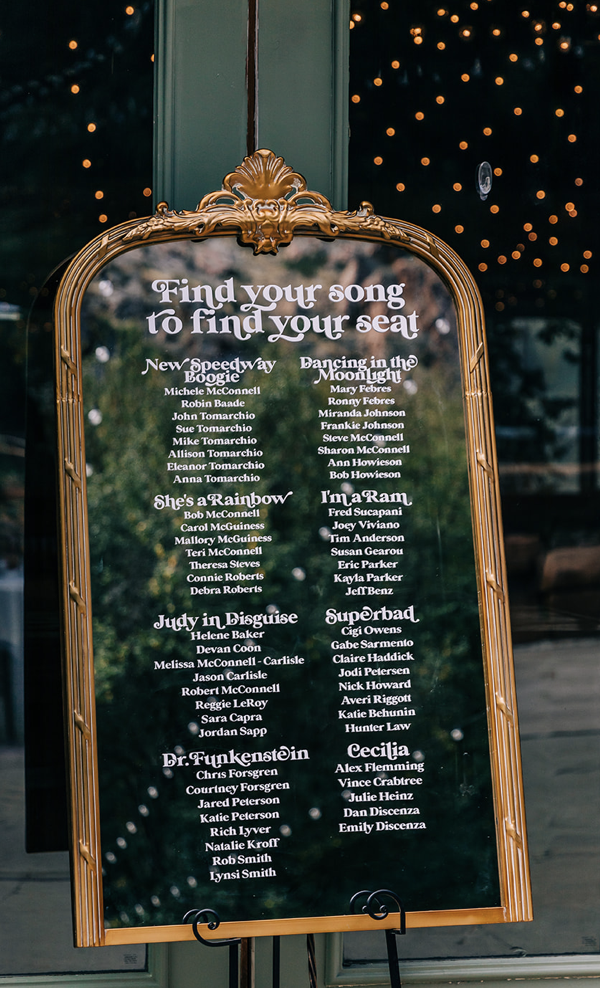 Find your song
to find your seat
New Speedway
Boogie
Michele McConnell
Robin Baade
John Tomarchio
Sue Tomarchio
Mike Tomarchio
Allison Tomarchio
Eleanor Tomarchio
Anna Tomarchio
She's a Rainbow
Bob McConnell
Carol McGuiness
Mallory McGuiness
Teri McConnell
Theresa Steves
Connie Roberts
Debra Roberts
Judy in Disguise
Helene Baker
Devan Coon
Melissa McConnell - Carlisle
Jason Carlisle
Robert McConnell
Reggie LeRoy
Sara Capra
Jordan Sapp
Dr. Funkenstein
Chris Forsgren
Courtney Forsgren
Jared Peterson
Katie Peterson
Rich Lyver
Natalie Kroff
Rob Smith
Lynsi Smith
Dancing in the
Moonlight
Mary Febres
Ronny Febres
Miranda Johnson
Frankie Johnson
Steve McConnell
Sharon McConnell
Ann Howieson
Bob Howieson
I'm a Ram
Fred Sucapani
Joey Viviano
Tim Anderson
Susan Gearou
Eric Parker
Kayla Parker
Jeff Benz
Superbad
Cigi Owens
Gabe Sarmento
Claire Haddick
Jodi Petersen
Nick Howard
Averi Riggott
Katie Behunin
Hunter Law
Cecilia
Alex Flemming
Vince Crabtree
Julie Heinz
Dan Discenza
Emily Discenza